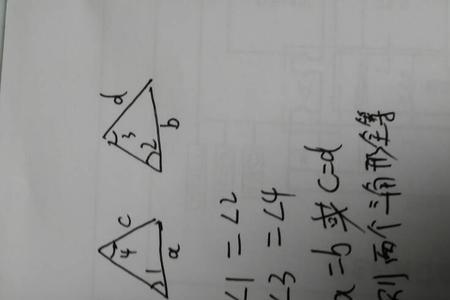 c
4
1
a
d
3
2
b
∠1=∠2
∠3=∠4
a=b 或 c=d
则两个三角形全等